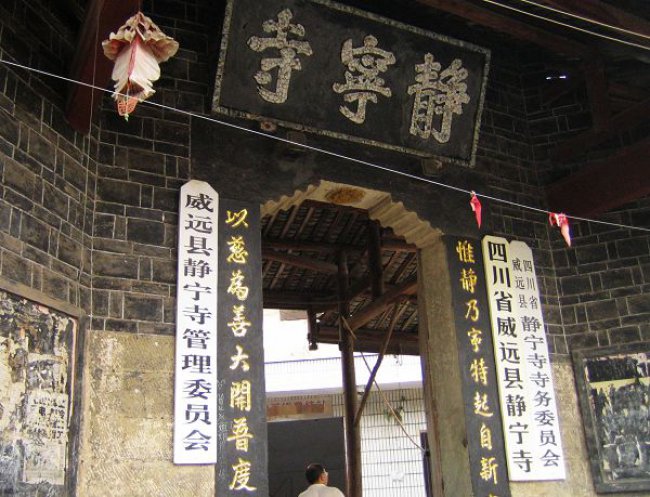 靜寧寺
惟静乃寧特起自新
以慈為善大開普度
威远县静宁寺管理委员会
四川省威远县静宁寺
四川省
威远县
静宁寺寺务委员会